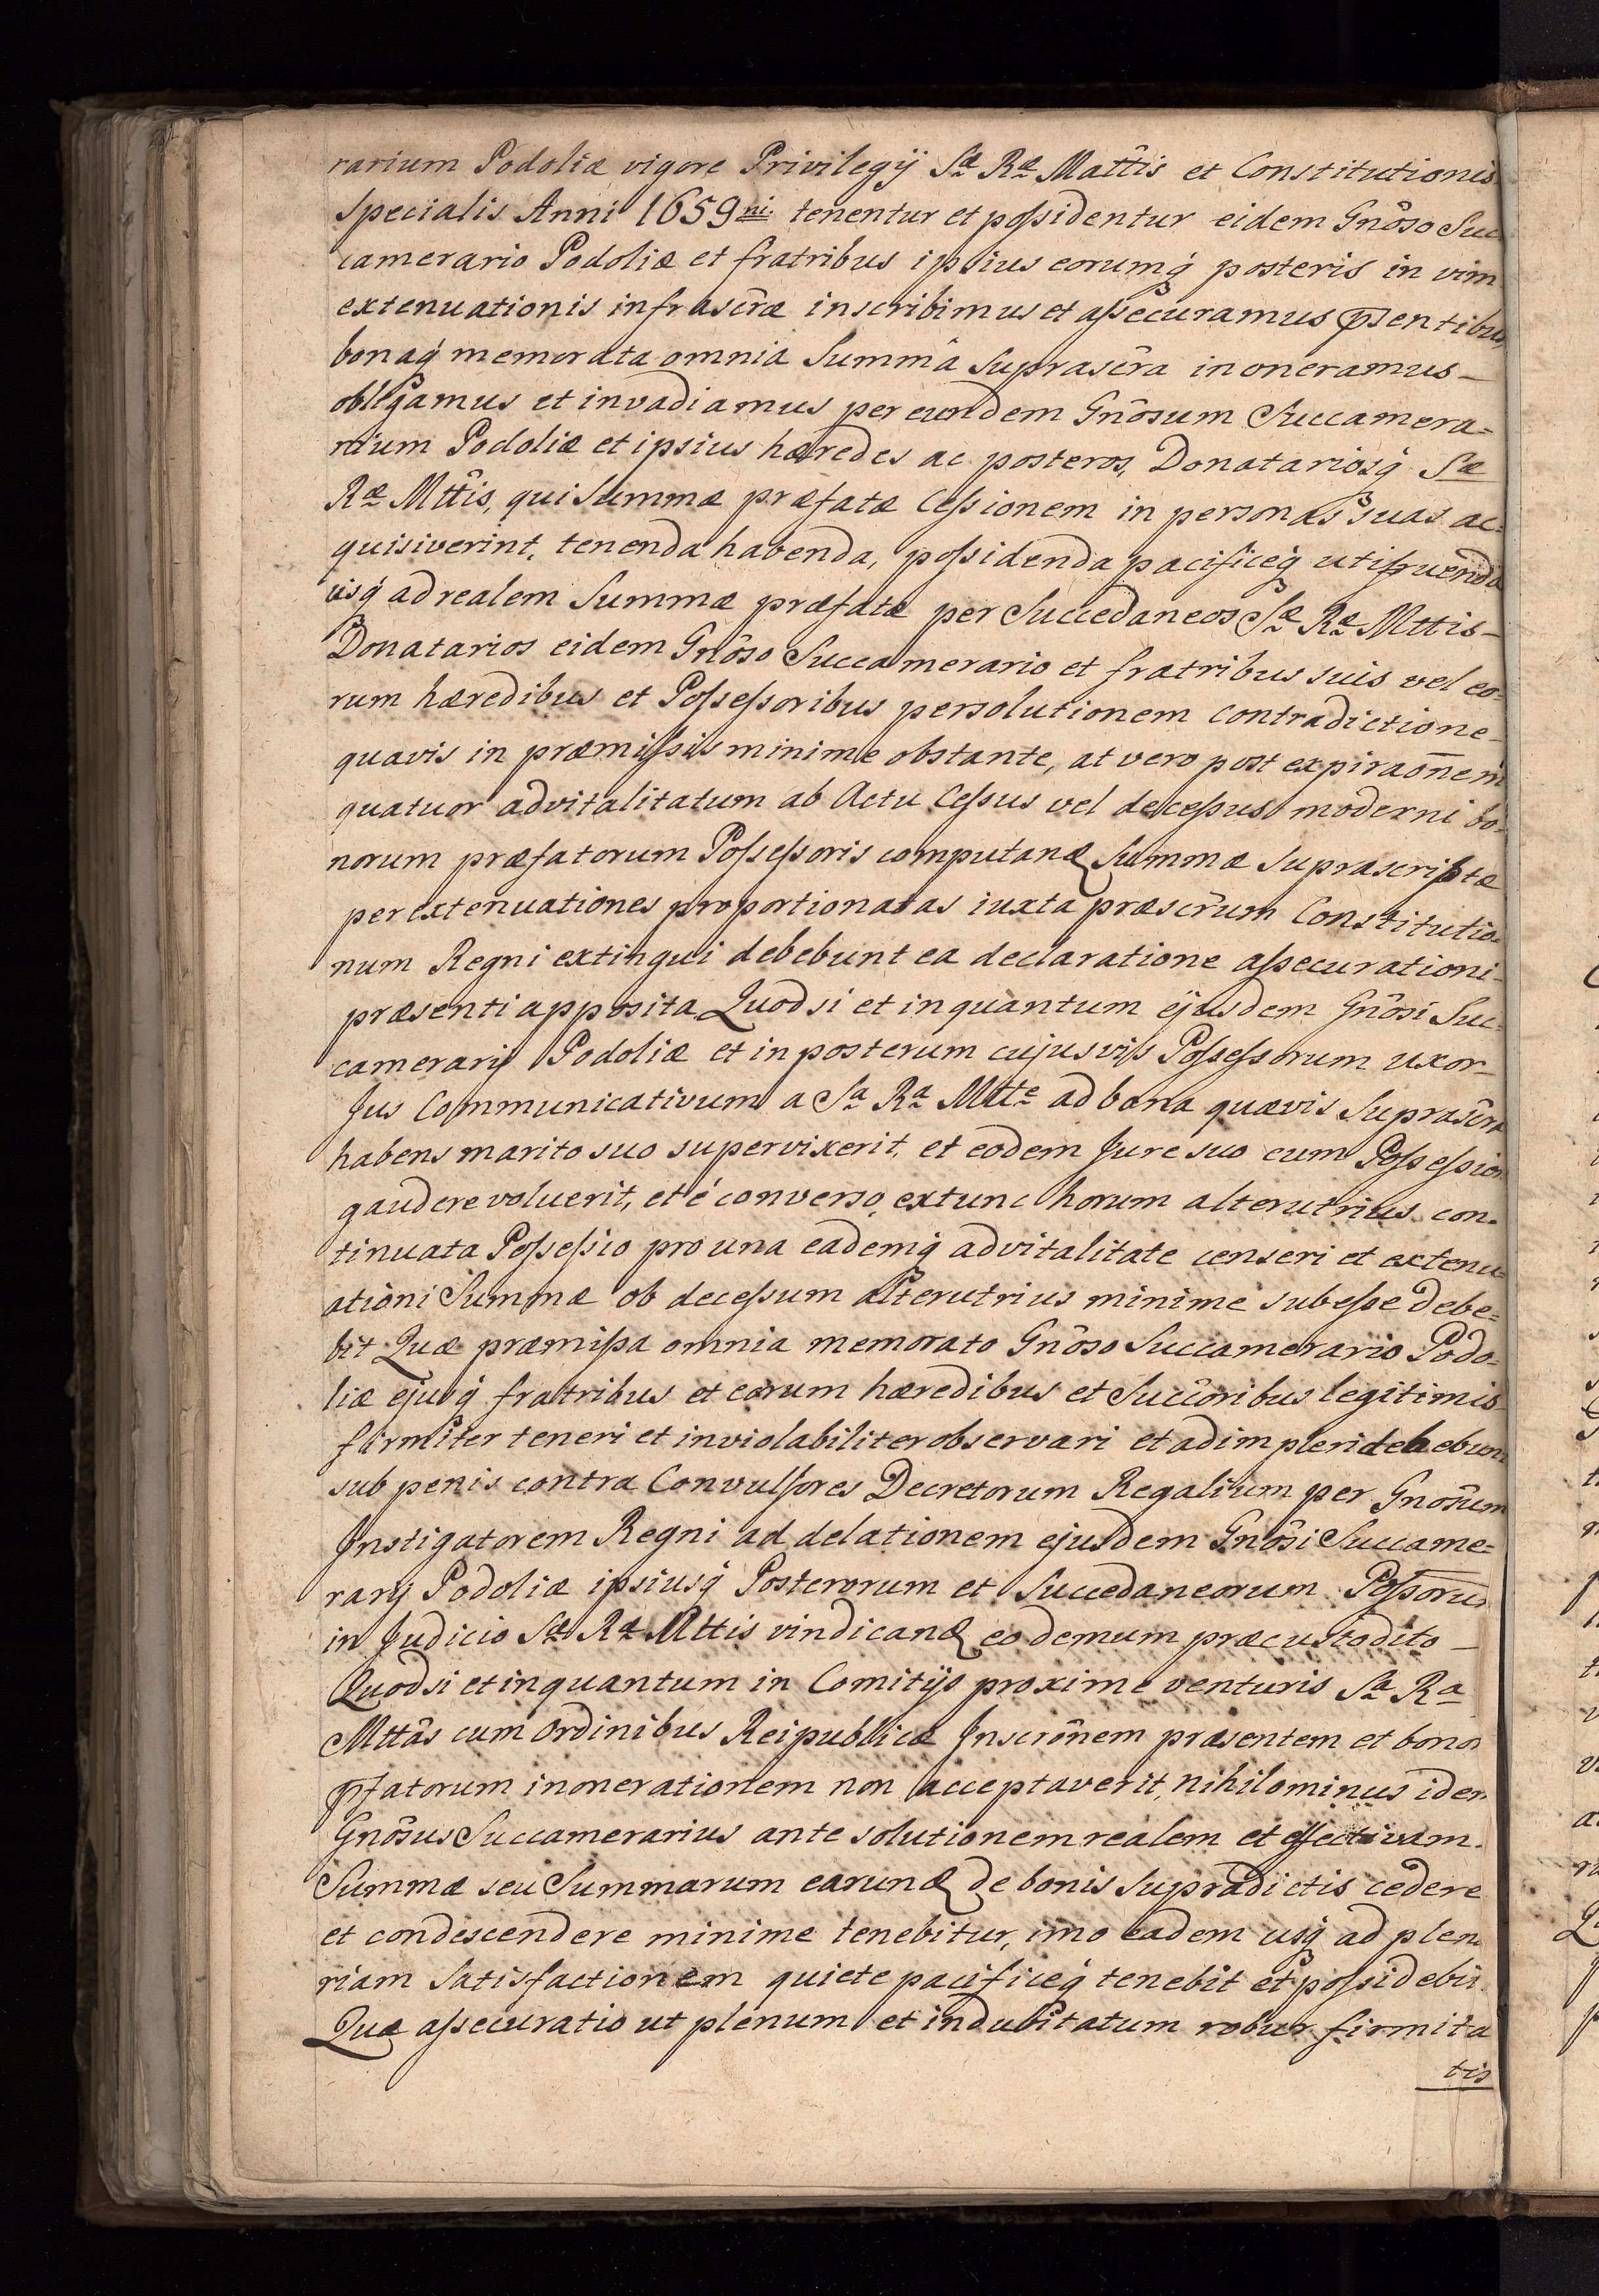 rarium Podoliæ vigore Privilegÿ Sæ Ræ Mattîs et Constitutionis
specialis Anni 1659ni. tenentur et poſsidentur eidem Gnôso Suc
camerario Podoliæ et fratribus ipsius eorumq́ posteris in vim
extenuationis infrascr̂æ inscribimus et aſsecuramus p̄sentibus
bonaq́ memorata omnia Summâ Suprascr̂a inoneramus_
obligamus et invadiamus per eundem Gnôsum Succamera=
rium Podoliæ et ipsius hæredes ac posteros, Donatariosq́ Sæ
Ræ Mttîs, qui Summæ præfatæ Ceſsionem in personas suas ac=
quisiverint, tenenda habenda, poſsidenda pacificeq́ utifruenda
usq́ ad realem Summæ præfatæ per Succedaneos Sæ Ræ Mttis_
Donatarios eidem Gnôso Succamerario et fratribus suis vel eo=
rum hæredibus et Poſseſsoribus persolutionem contradictione_
quavis in præmiſsis minime obstante, at vero post expiraōnem
quatuor advitalitatum ab Actu Ceſsus vel deceſsus moderni bo=
norum præfatorum Poſseſsoris computanđ Summæ suprascriptæ
per extenuationes proportionatas iuxta præscr̂um Constitutio=
num Regni extingui debebunt ea declaratione aſsecurationi_
præsenti apposita. Quodsi et inquantum ejusdem Gnôsi Suc=
camerarÿ Podoliæ et inposterum cujusvis Poſseſsorum uxor_
Jus Communicativum a Sa Ra Mtte ad bona quævis Suprascr̂a
habens marito suo supervixerit, et eodem Jure suo cum Poſseſsion
gaudere voluerit, et é converso, extunc horum alterutrius con=
tinuata Poſseſsio pro una eademq́ advitalitate censeri et extenu=
ationi Summæ ob deceſsum alterutrius minime subeſse debe=
bit. Quæ præmiſsa omnia memorato Gnôso Succamerario Podo=
liæ ejusq́ fratribus et earum hæredibus et Succôribus legitimis_
firmiter teneri et inviolabiliter observari et adimpleri debebunt
sub penis contra Convulſores Decretorum Regalium per Gnôsum
Instigatorem Regni ad delationem ejusdem Gnôsi Succame=
rarÿ Podoliæ ipsiusq́ Posterorum et Succedaneorum Poſsorū
in Judicio Sæ Ræ Mttis vindicanđ eo demum præcustodito_
Quodsi et inquantum in Comitÿs proxime venturis Sa Ra
Mttâs cum Ordinibus Reipublicæ Inscr̂onem præsentem et bonor
p̄fatorum inonerationem non acceptaverit, nihilominus idem
Gnôsus Succamerarius ante solutionem realem et effectivam.
Summæ seu Summarum earunđ de bonis supradictis cedere
et condescendere minime tenebitur, imo eadem usq́ ad plena
riam Satisfactionem quiete pacificeq́ tenebit et poſsidebit.
Quæ aſsecuratio ut plenum et indubitatum robur firmita
tis